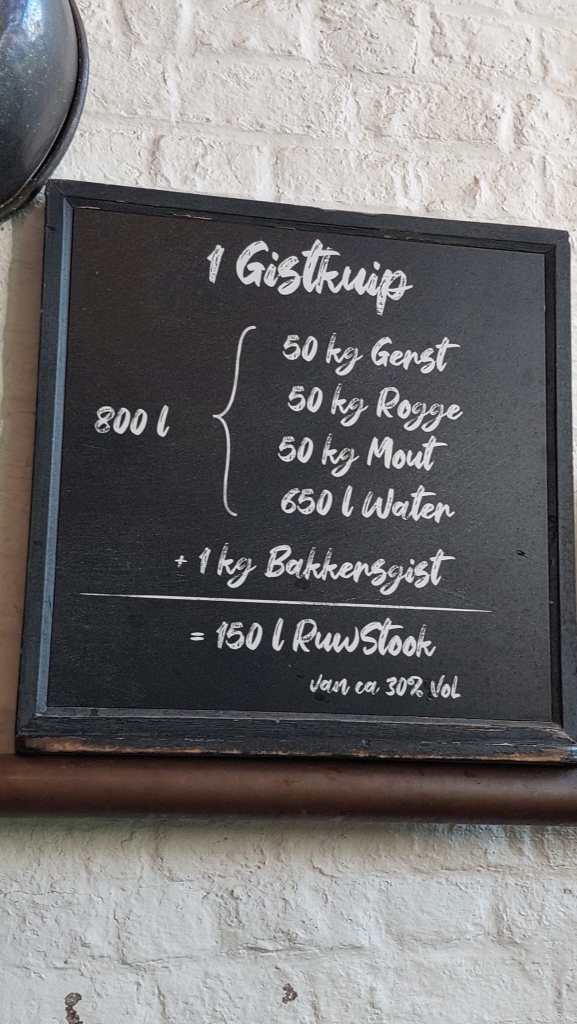 1 Gistkuip
50 kg Gerst
50 kg Rogge
800 l
50 kg Mout
650 l Water
+ 1 kg Bakkersgist
= 150 l RuwStook
van ca 30% Vol